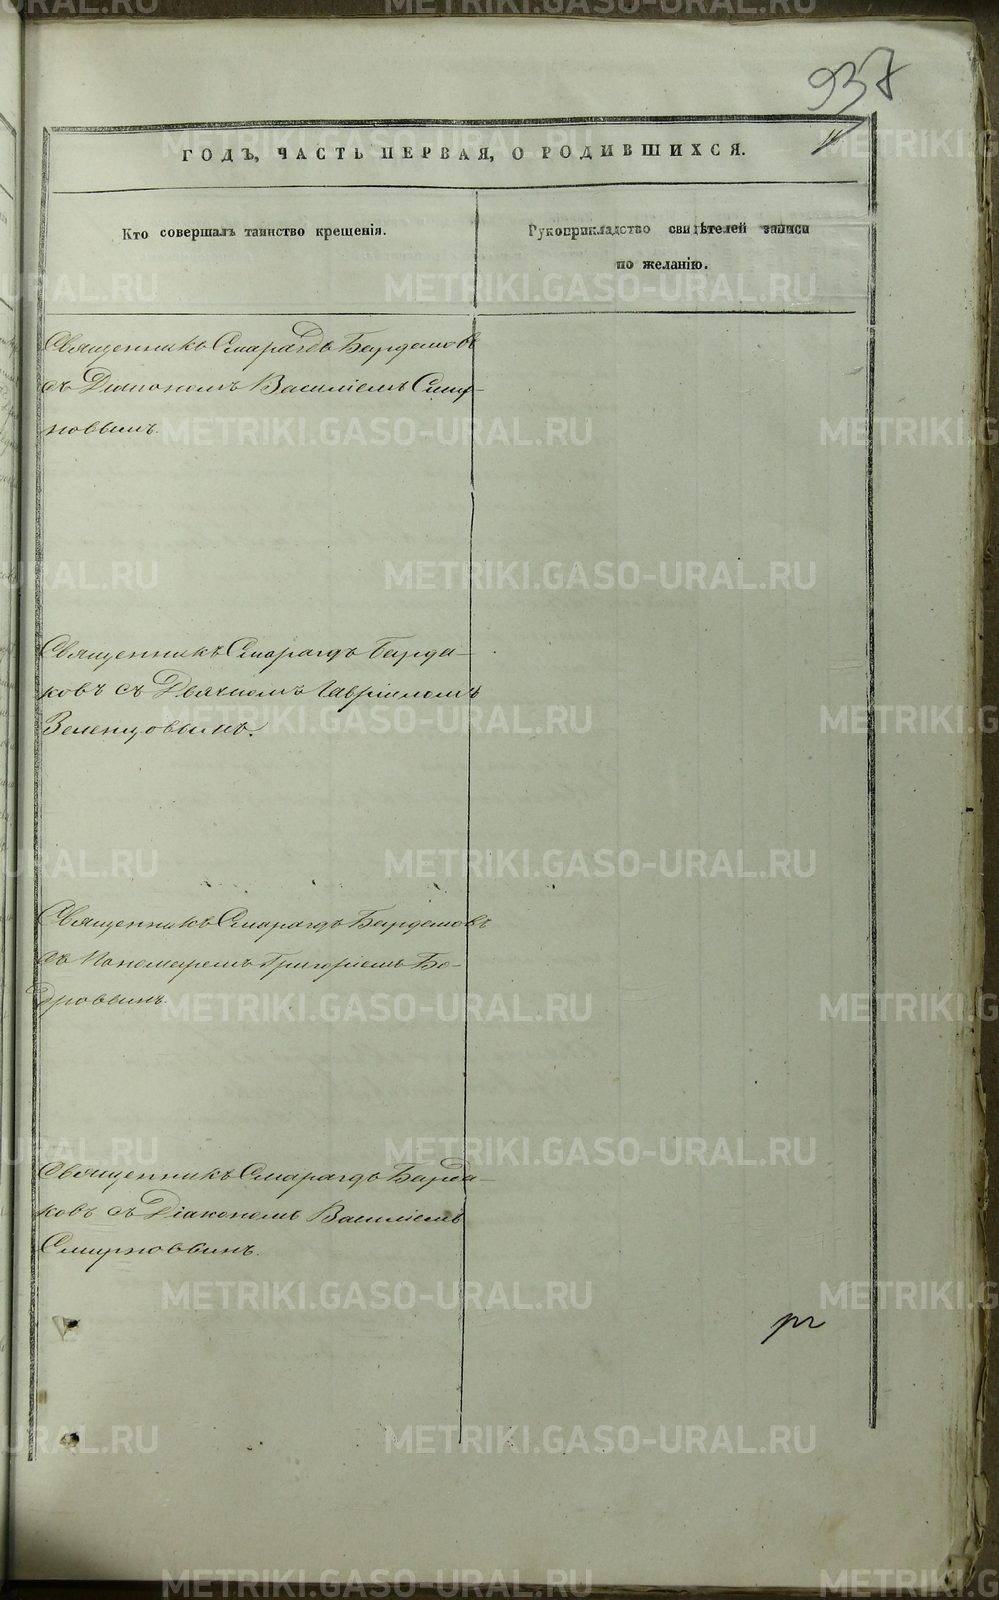 937
ГОДЪ, ЧАСТЬ ПЕРВАЯ, О РОДИВШИХСЯ.
Кто совершалъ таинство крещенія.
Рукоприкладство свидѣтелей записи
по желанію.
Священникъ Смарагдъ Бардаковъ
съ Діакономъ Василіемъ Смир-
новымъ.
Священникъ Смарагдъ Барда-
ковъ съ Дьячкомъ Гавріиломъ
Зеленцовымъ.
Священникъ Смарагдъ Бардаковъ
съ Пономаремъ Григоріемъ Бо-
дровымъ.
Священникъ Смарагдъ Барда-
ковъ съ Діакономъ Василіемъ
Смирновымъ.
METRIKI.GASO-URAL.RU